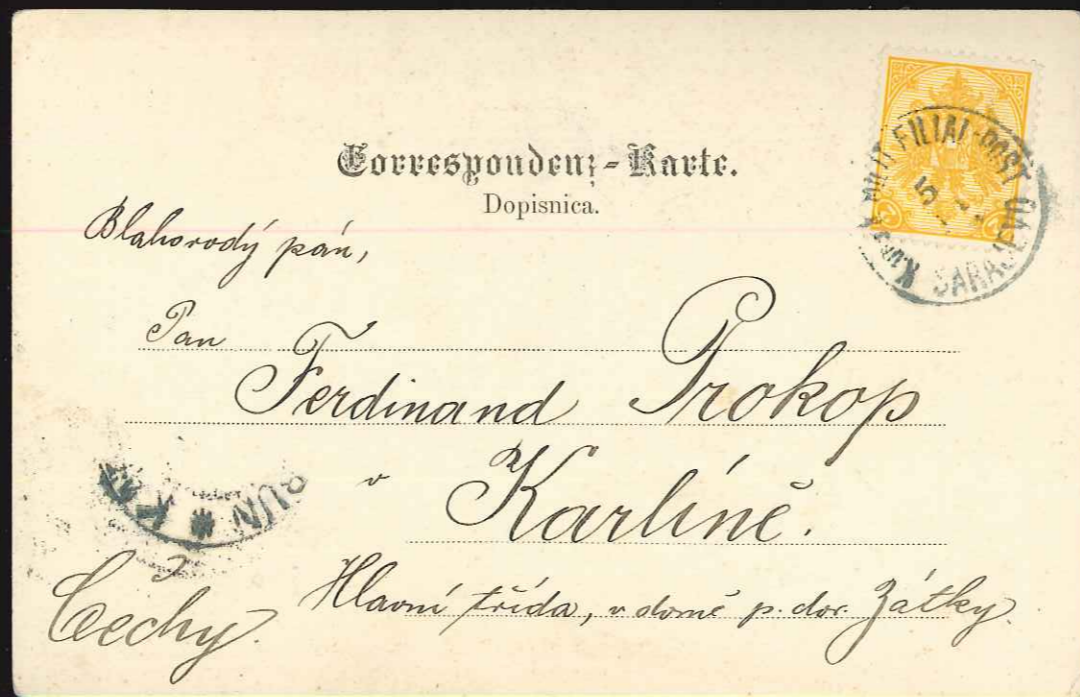 Correspondenz-Karte.
Dopisnica.
K.UND K. MILIT. FILIAL-POST
SARAJEVO
5
Blahorodý pán,
Pan
Ferdinand Prokop
v Karlíně.
Hlavní třída, v domě p. dor. Zátky
Čechy.